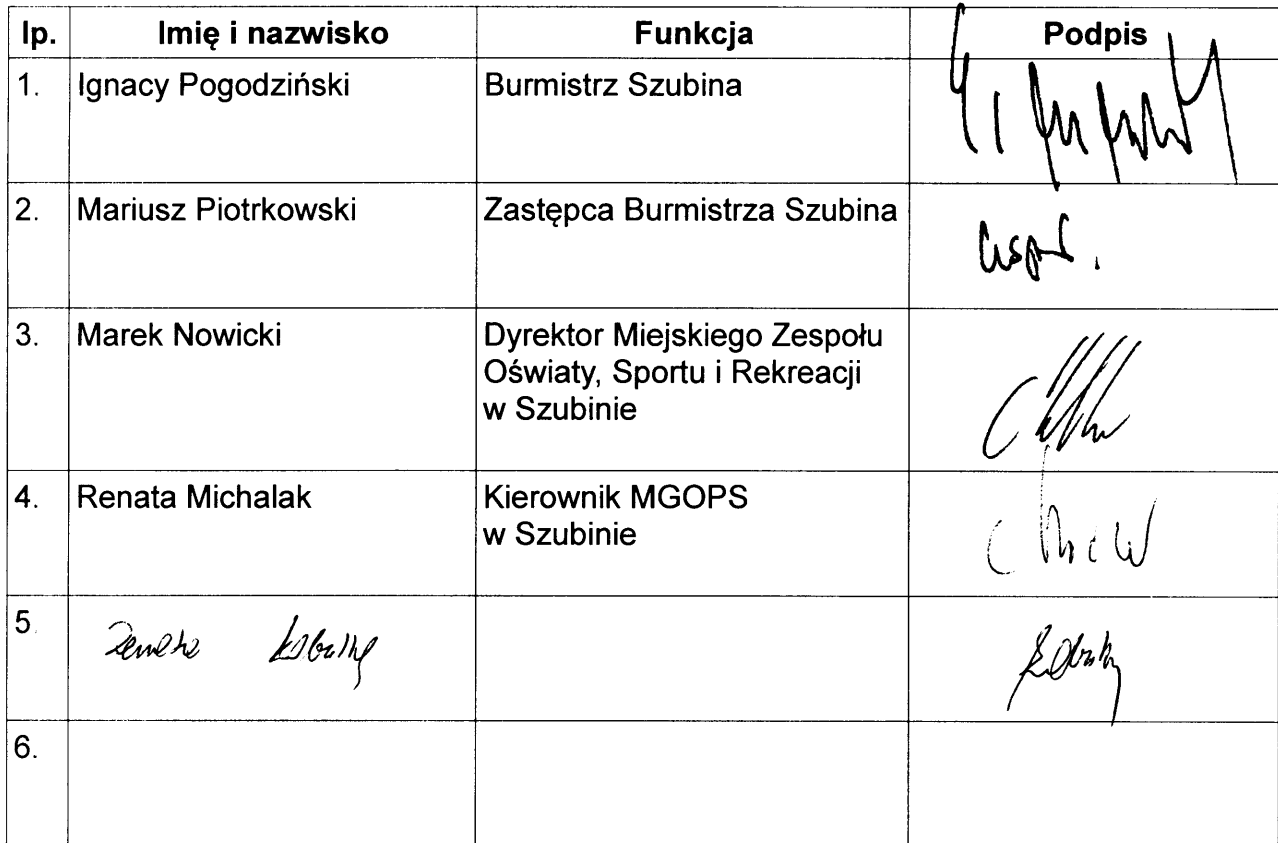 lp. Imię i nazwisko Funkcja Podpis
1. Ignacy Pogodziński Burmistrz Szubina
2. Mariusz Piotrkowski Zastępca Burmistrza Szubina
3. Marek Nowicki Dyrektor Miejskiego Zespołu
Oświaty, Sportu i Rekreacji
w Szubinie
4. Renata Michalak Kierownik MGOPS
w Szubinie
5.
6.